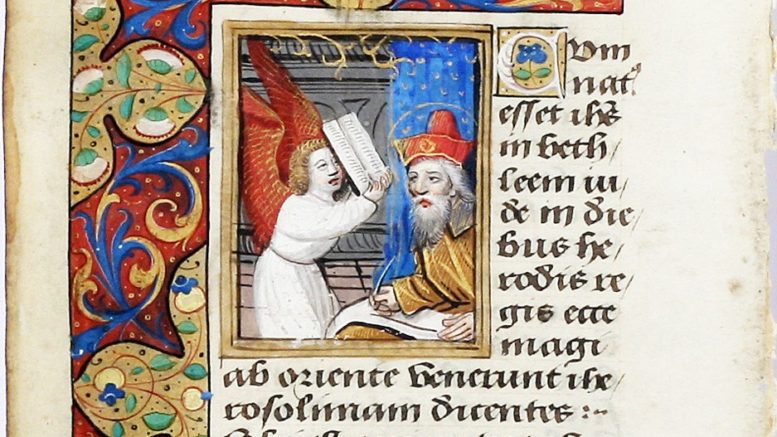 Cum
nat⁹
esset ihs
in beth
leem iu/
de in die
bus he/
rodis re
gis ecce
magi
ab oriente venerunt ihe/
rosolimam dicentes :~